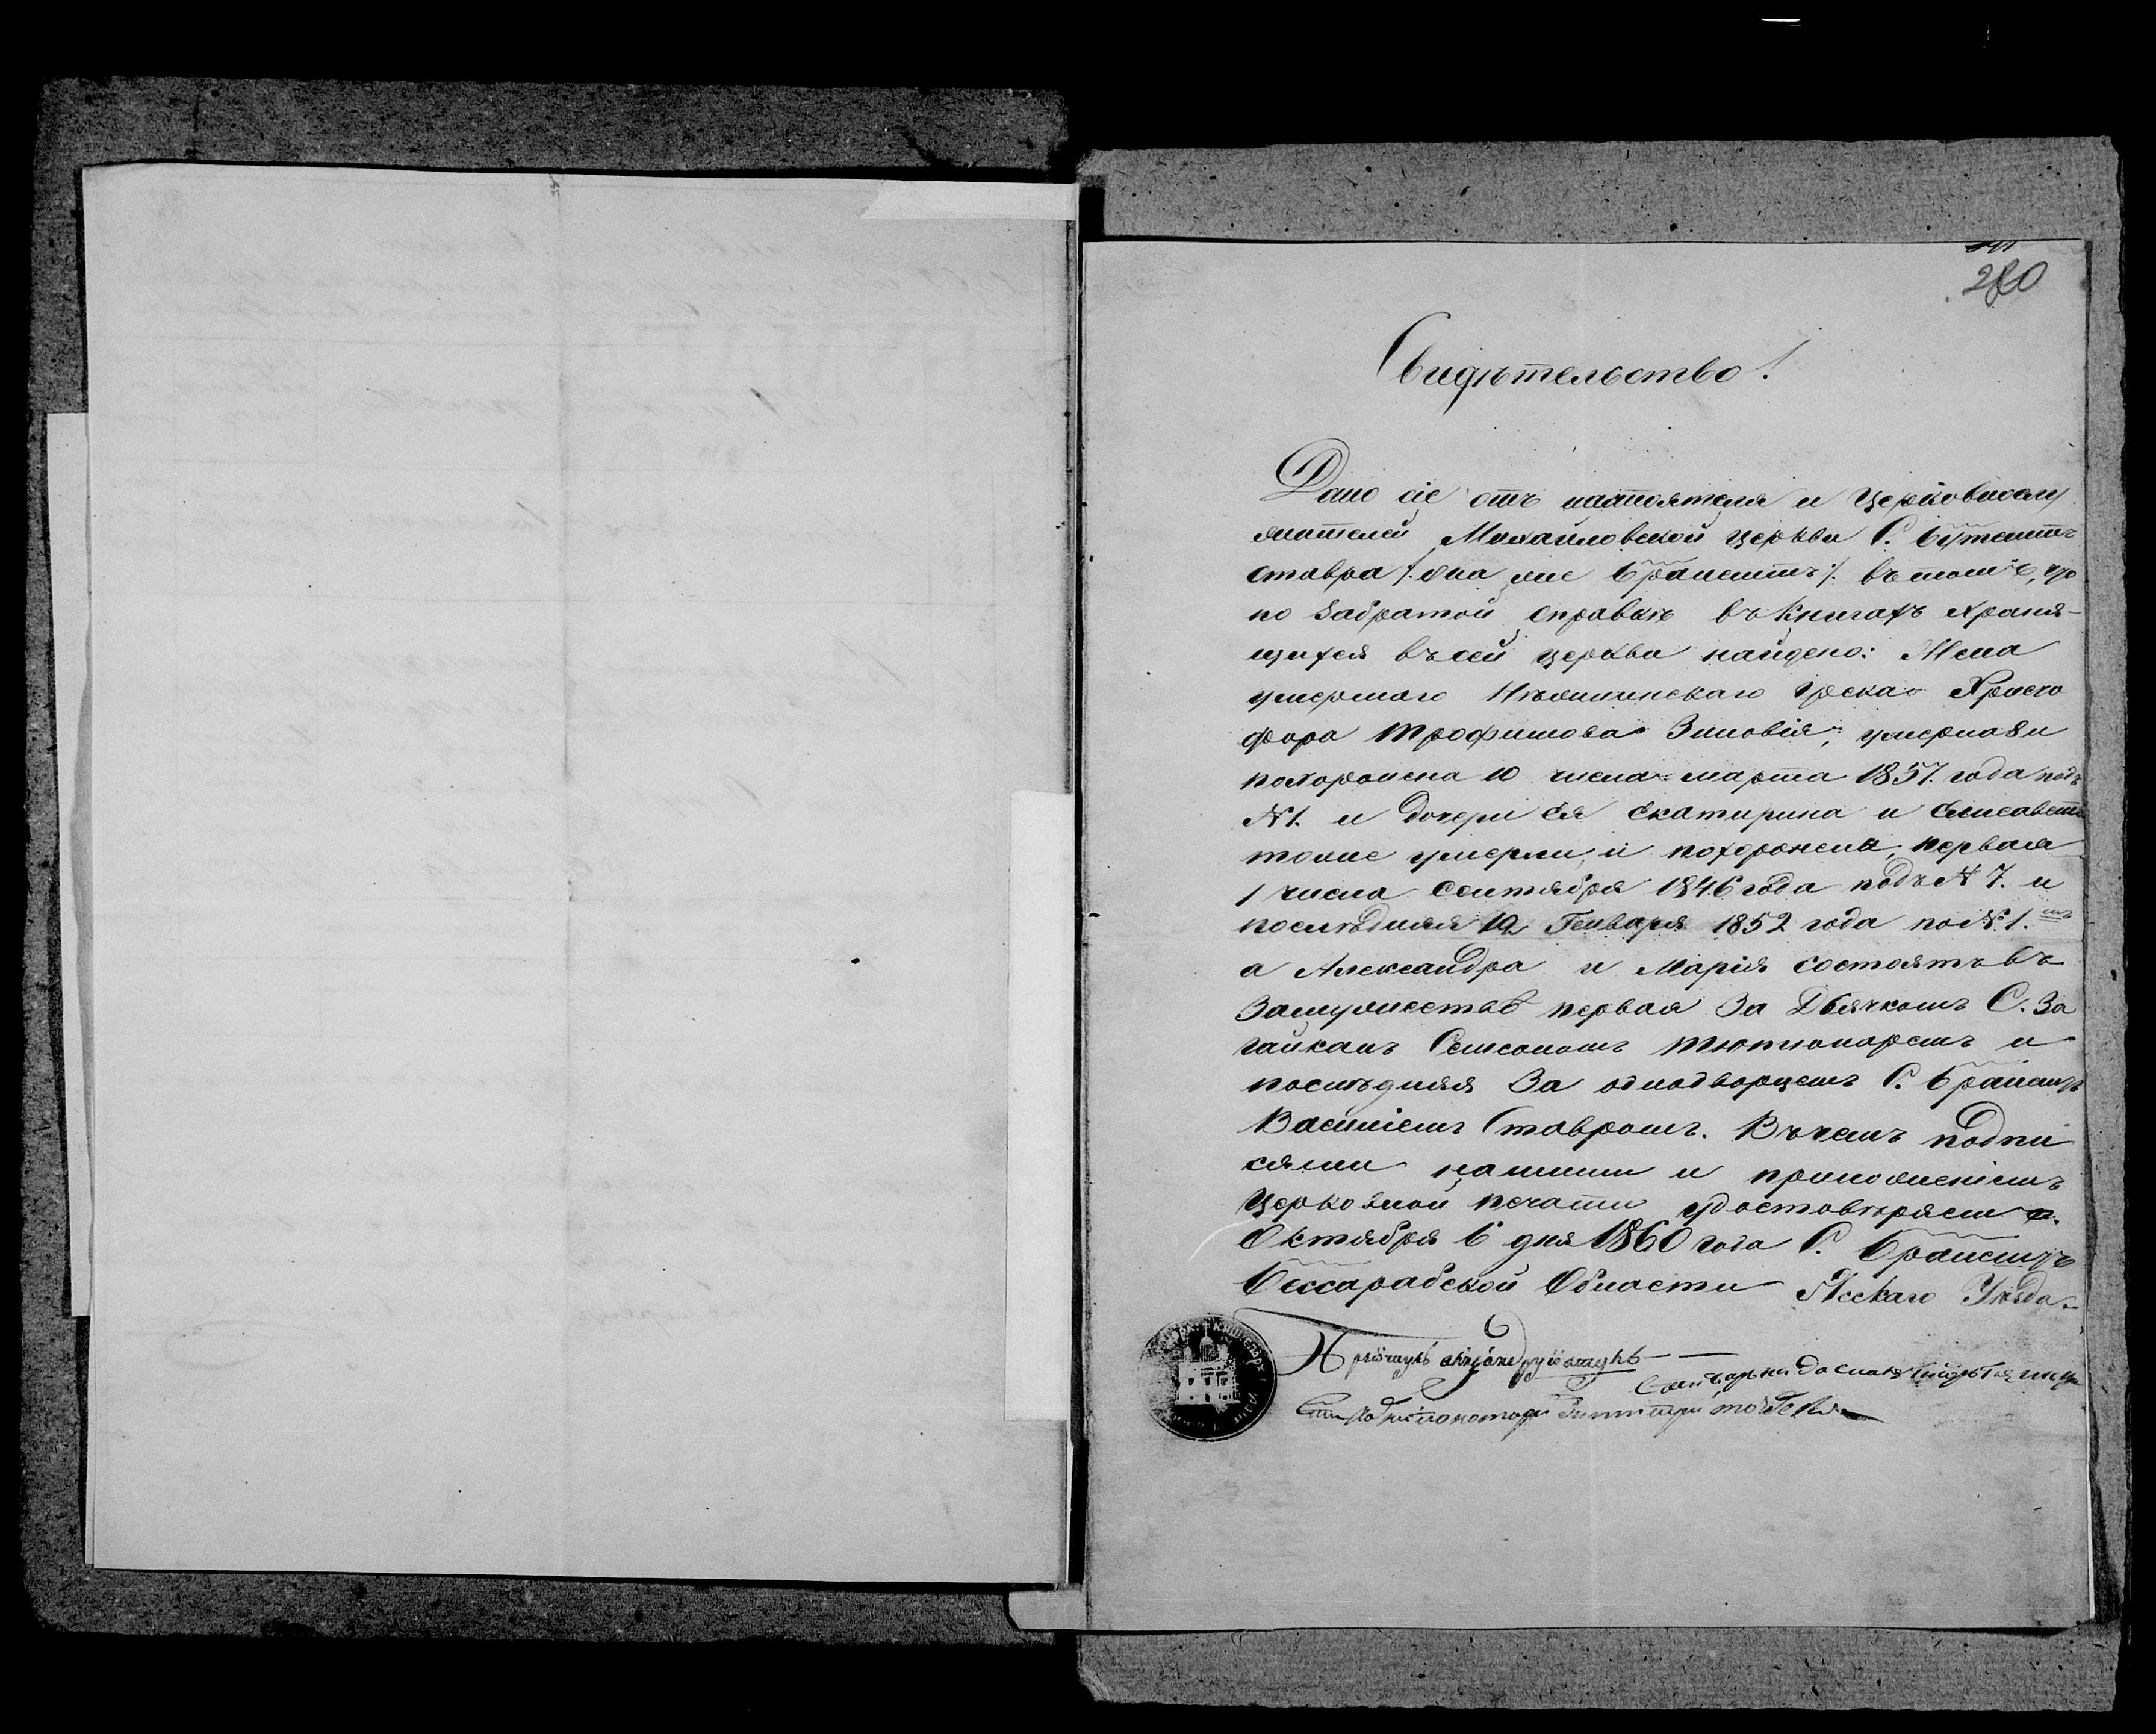 280
Свидѣтельство!
Дано сіе отъ настоятеля и Церковнослу
жителей Михайловской церкви С. Бутешть
Ставра /: она же Бранештъ :/ въ томъ, что
по забратой справкѣ въ книгахъ храня-
щихся въ сей церкви найдено: Жена
умершаго Нѣжинскаго Грека Христо
фора Трофимова Зиновія, умерла и
похоронена 10 числа марта 1857. года подъ
№ 1. и дочери ея Екатирина и Елисавета
тоже умерли, и похоронена, первая
1 числа Сентября 1846 года подъ № 7. и
послѣдняя 12 Генваря 1852 года по №. 1.мъ
а Александра и Марія состоятъ въ
замужествѣ первая за Дьячкомъ С. За
гайканъ Семсономъ Тютюнаремъ и
послѣдняя за однодворцемъ С. Бранештъ
Василіемъ Ставромъ. Въ чемъ подпи
сями нашими и приложеніемъ
Церковной печати удостовѣряемъ.
Октября 6 дня 1860 года С. Бранештъ
Бессарабской Области Ясскаго Уѣзда.